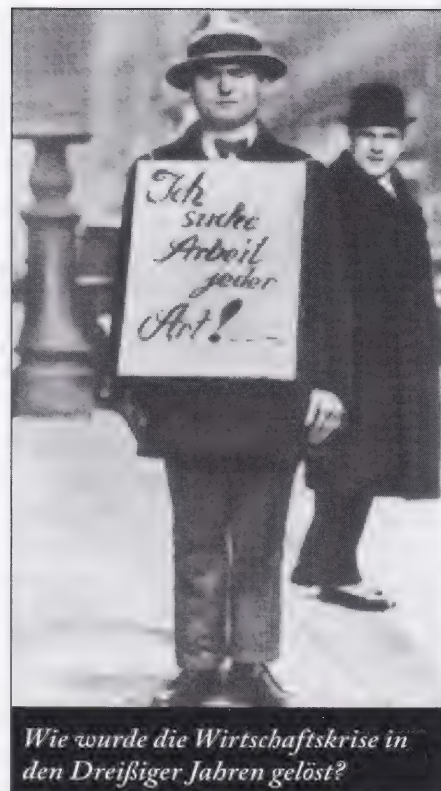 Ich
suche
Arbeit
jeder
Art!
Wie wurde die Wirtschaftskrise in
den Dreißiger Jahren gelöst?